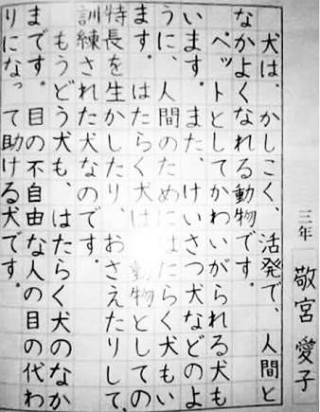 三年 敬宮愛子
犬は、かしこく、活発で、人間と
なかよくなれる動物です。
ペットとしてかわいがられる犬も
います。また、けいさつ犬などのよ
うに、人間のためにはたらく犬もい
ます。はたらく犬は、動物としての
特長を生かしたり、おさえたりして、
訓練された犬なのです。
もうどう犬も、はたらく犬のなか
まです。目の不自由な人の目の代わ
りになって助ける犬です。